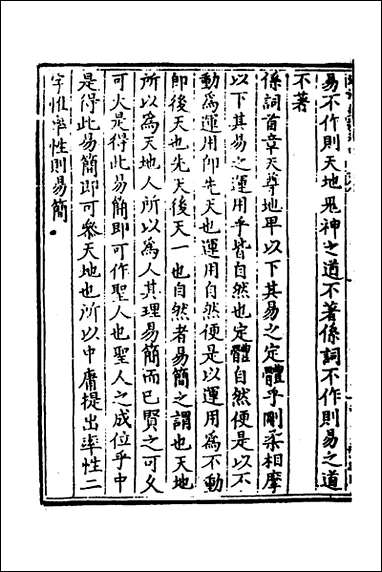 易不作則天地鬼神之道不著係詞不作則易之道
不著
係詞首章天尊地卑以下其易之定體乎剛柔相摩
以下其易之運用乎皆自然也定體自然便是以不
動為運用即先天也運用自然便是以運用為不動
即後天也先天後天一也自然者易簡之謂也天地
所以為天地人所以為人其理易簡而已賢之可久
可大是得此易簡即可作聖人也聖人之成位乎中
是得此易簡即可參天地也所以中庸提出率性二
字惟率性則易簡